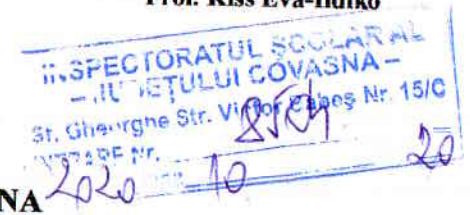 Prof. Kiss Éva-Ildikó
INSPECTORATUL ŞCOLAR AL
– JUDEŢULUI COVASNA –
Sf. Gheorghe Str. Victor Babeş Nr. 15/C
Nr. 8504
NA 2020 10 20